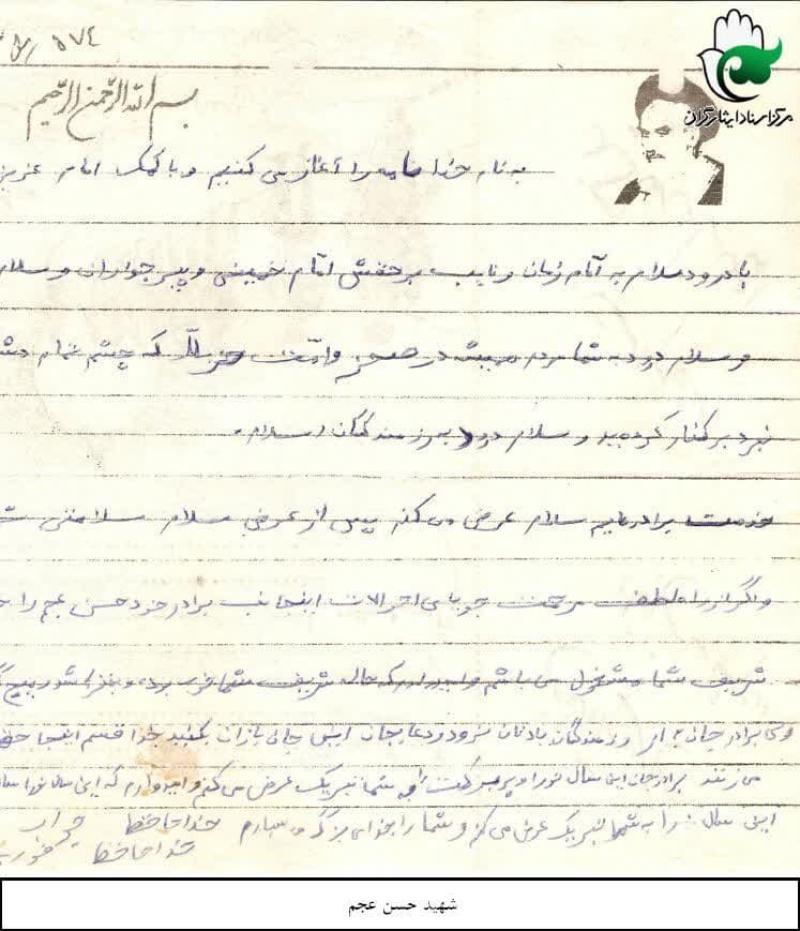 ۵۷۴
مرکز اسناد ایثارگران
بسم الله الرحمن الرحیم
به نام خدا نامه را آغاز می کنیم و با کمک امام عزیز
با درود و سلام به امام زمان و نایب برحقش امام خمینی و پیر جماران و سلام
و سلام درود به شما مردم همیشه در صحنه و امت حزب الله که چشم تمام
نبرد بر کنار کرده‌ید و سلام درود به رزمندگان اسلام.
خدمت برادرهایم سلام عرض می کنم پس از عرض سلام سلامتی
و اگر از راه لطف مرحمت جویای احوالات اینجانب برادر خود حسن عجم را
شریف شما مشغول می باشم و امیدوارم که حال شریف شما خوب بوده و
ولی برادر جان رزمندگان یادتان نرود و دعا یجان اینجا قسم
می زنند برادر جان این سال نو را به شما تبریک عرض می کنم و امیدوارم که این سال نو را
این سال نو را به شما تبریک عرض می کنم و شما را بخدای بزرگ می سپارم خداحافظ جواب
خداحافظ فوری
شهید حسن عجم